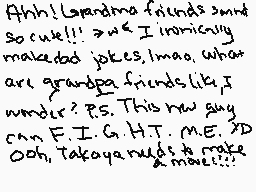 Ahh! Grandma friends sound
so cute!! >w< I ironically
make dad jokes, lmao. What
are grandpa friends like, I
wonder? P.S. This new guy
can F.I.G.H.T. M.E. XD
Ooh, Takaya needs to make
a move!!!